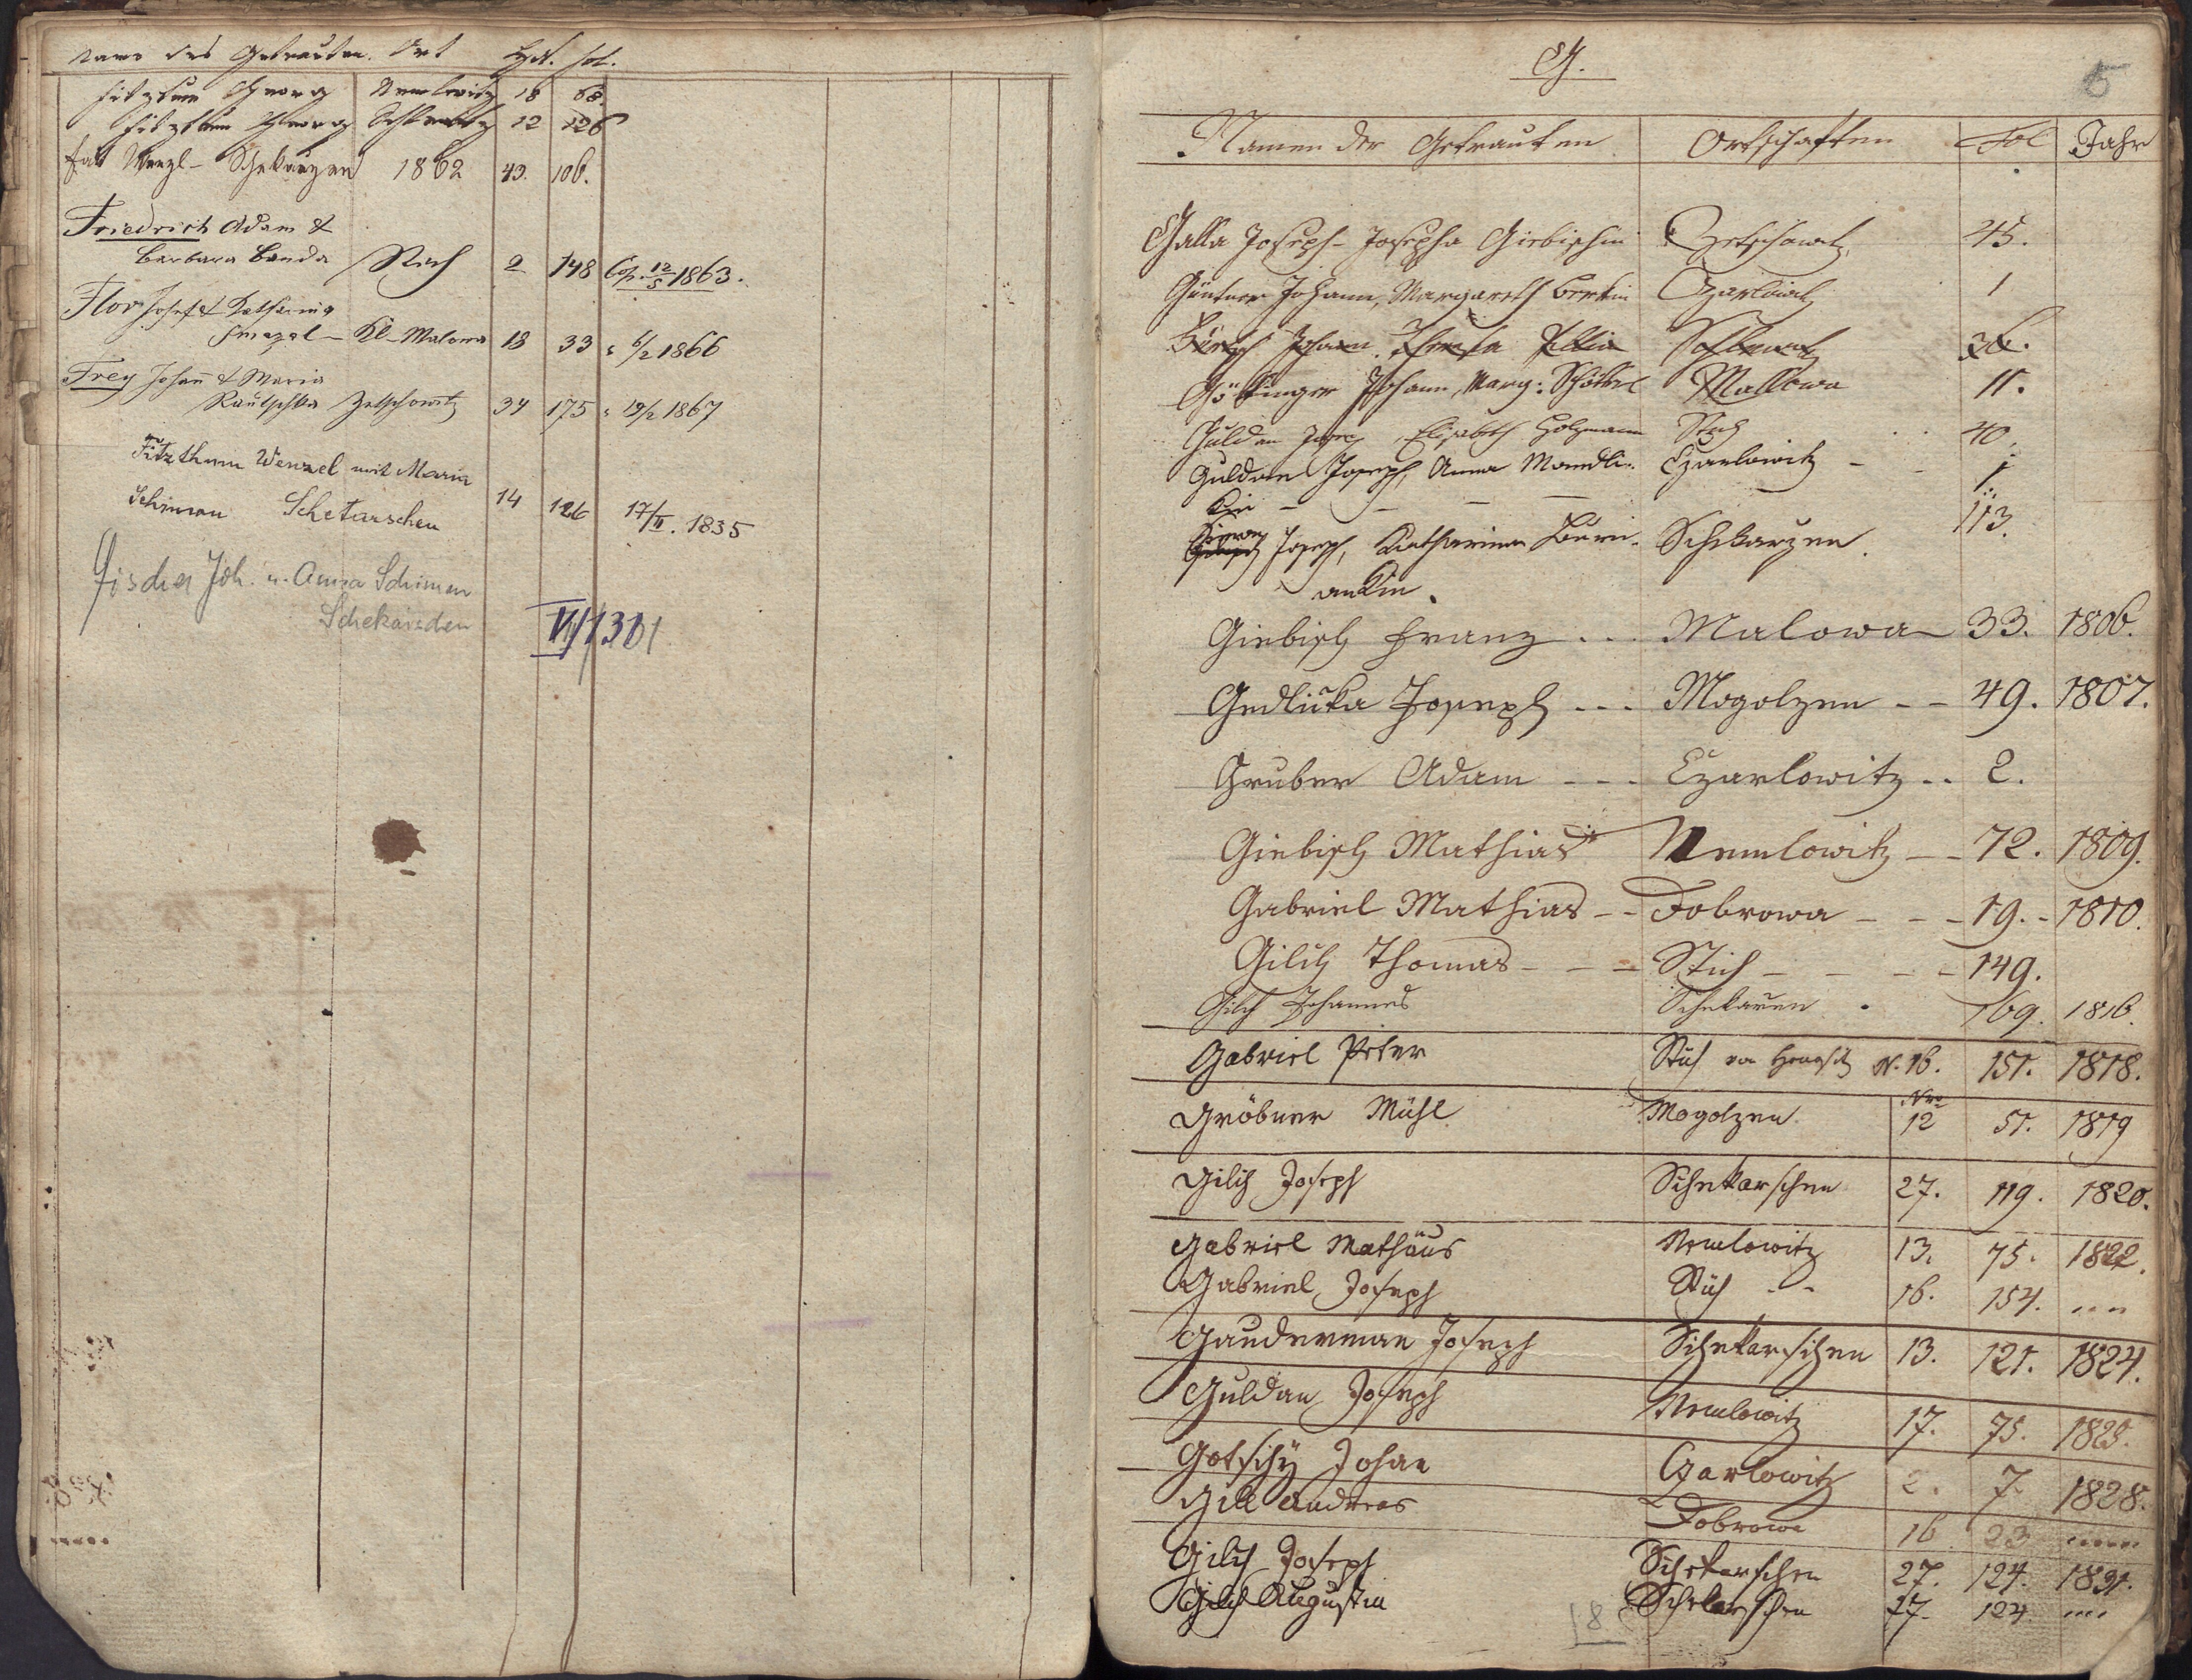 Name des Getrauten. Ort Hs. fol.
Fitzthum Georg Nemlowitz 18 68.
Fitzthum Georg 12 126
Wenzl - Schekarzen 1862 43. 106.
Friedrich Adam &
Barbara Banda Stich 2 148 Cop. 12/5 1863.
Flor Josef & Katharina
Smazal - Kl-Malowa 18 33 " 6/2 1866
Frey Johann & Maria
Rautschka Zetschowitz 34 175 " 19/2 1867
Fitzthum Wenzel mit Maria
Schiman Schekarschen 14 126 17/II. 1835
Fischer Joh. u. Anna Schiman
Schekarschen VI/1301
G.
5
Namen der Getrauten Ortschaften Fol Jahr
Galla Joseph - Josepha Giebischin Zetschowitz 45.
Güntner Johann, Margareth Czarlowitz 1
Johann. Theresia 36.
Göttinger Johann, Marg: Mallowa 11.
Guldan Joseph, Elisabeth Holzmann Stich 40.
Guldan Joseph, Anna Mandli- Czarlowitz - - 1
kin - - - -
Joseph, Katharina Schekarzen. 113.
ankin.
Giebisch Franz ... Malowa 33. 1806.
Gedlička Joseph ... Mogolzen - - 49. 1807.
Gruber Adam - - - Czarlowitz .. 2.
Giebisch Mathias Nemlowitz - - 72. 1809.
Gabriel Mathias - - Dobrowa - - - 19. - 1810.
Gilch Thomas - - - Stich - - - - 149.
Gilch Johannes Schekarzen . 169. 1816.
Gabriel Peter Stich N. 16. 151. 1818.
Gröbner Mühl Mogolzen. Nro 12 51. 1819
Gilch Joseph Schekarschen 27. 119. 1820.
Gabriel Mathäus Nemlowitz 13. 75. 1822.
Gabriel Joseph Stich - - 16. 154. ....
Gauderman Joseph Schekarschen 13. 121. 1824.
Guldan Joseph Nemlowitz 17. 75. 1825.
Gotschy Johan Czarlowitz 2. 7. 1828.
Gill Andreas Dobrowa 16 23 .....
Gilch Joseph Schekarschen 27. 124. 1831.
Gilch Augustin Schekarschen 27. 124 ....
18